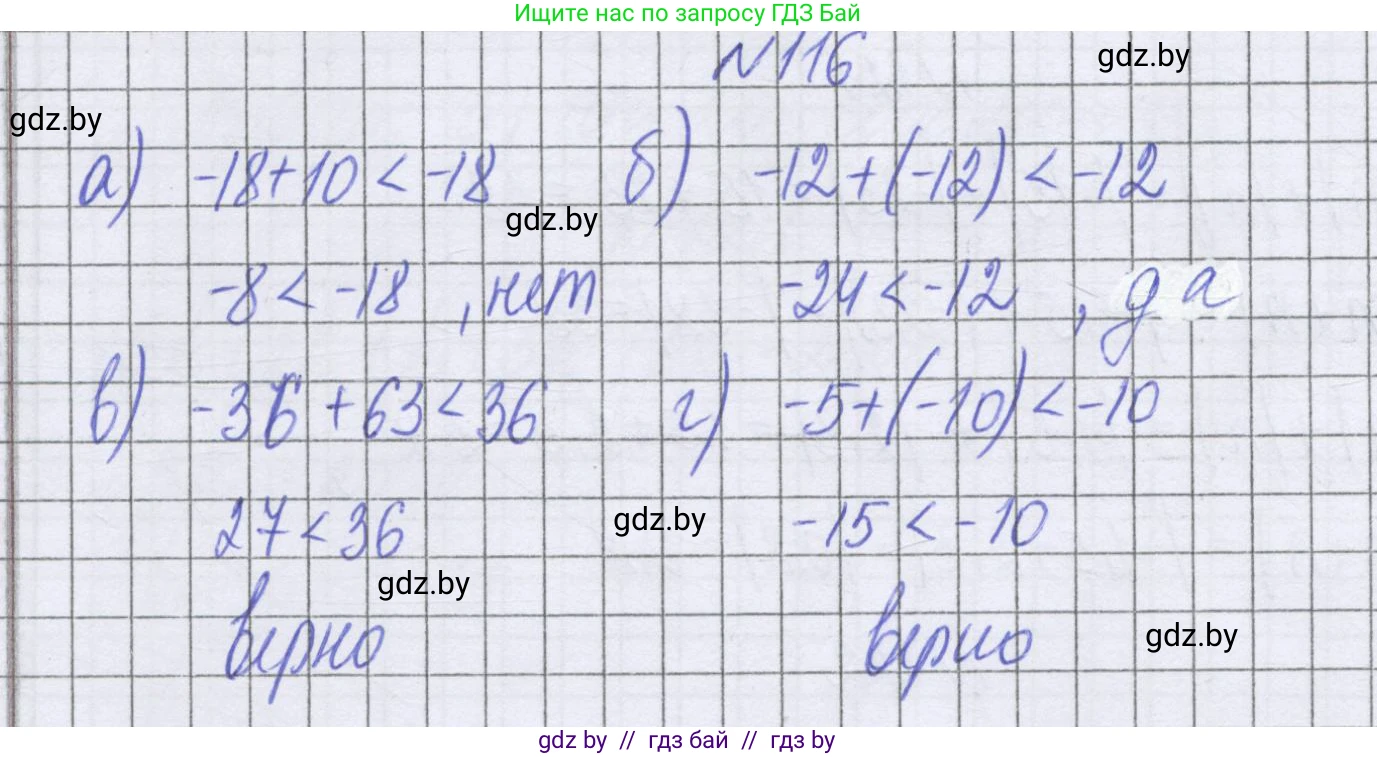 Ищите нас по запросу ГДЗ Бай
N116
gdz.by
gdz.by
а) -18+10 < -18
б) -12+(-12) < -12
gdz.by
-8 < -18 , нет
-24 < -12 , да
в) -36 + 63 < 36
г) -5+(-10) < -10
27 < 36
gdz.by
-15 < -10
gdz.by
верно
верно
gdz.by
gdz by // гдз бай // гдз by